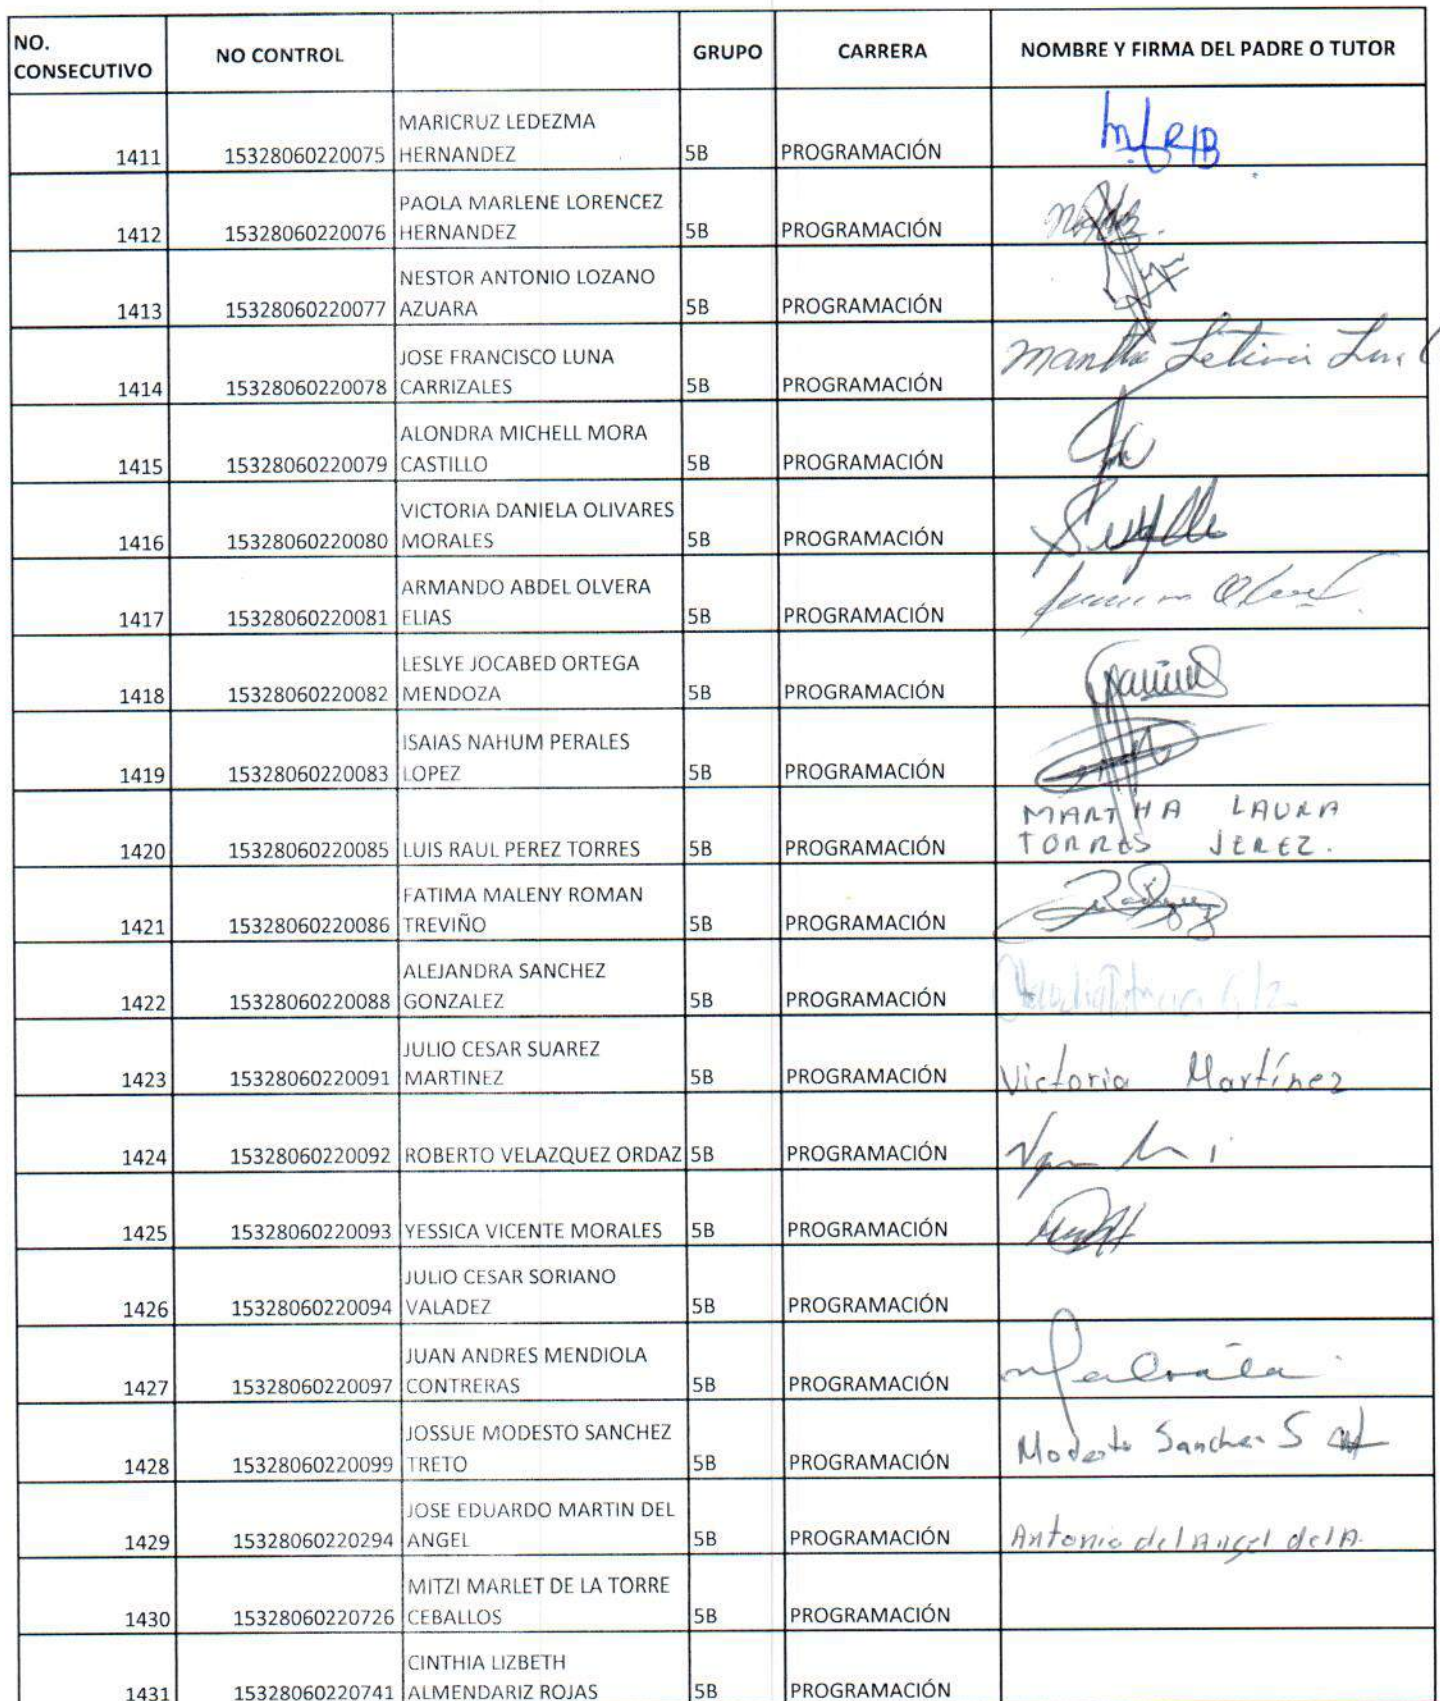 NO. CONSECUTIVO NO CONTROL GRUPO CARRERA NOMBRE Y FIRMA DEL PADRE O TUTOR
1411 15328060220075 MARICRUZ LEDEZMA HERNANDEZ 5B PROGRAMACIÓN
1412 15328060220076 PAOLA MARLENE LORENCEZ HERNANDEZ 5B PROGRAMACIÓN
1413 15328060220077 NESTOR ANTONIO LOZANO AZUARA 5B PROGRAMACIÓN
1414 15328060220078 JOSE FRANCISCO LUNA CARRIZALES 5B PROGRAMACIÓN
1415 15328060220079 ALONDRA MICHELL MORA CASTILLO 5B PROGRAMACIÓN
1416 15328060220080 VICTORIA DANIELA OLIVARES MORALES 5B PROGRAMACIÓN
1417 15328060220081 ARMANDO ABDEL OLVERA ELIAS 5B PROGRAMACIÓN
1418 15328060220082 LESLYE JOCABED ORTEGA MENDOZA 5B PROGRAMACIÓN
1419 15328060220083 ISAIAS NAHUM PERALES LOPEZ 5B PROGRAMACIÓN
1420 15328060220085 LUIS RAUL PEREZ TORRES 5B PROGRAMACIÓN MARTHA LAURA TORRES JEREZ.
1421 15328060220086 FATIMA MALENY ROMAN TREVIÑO 5B PROGRAMACIÓN
1422 15328060220088 ALEJANDRA SANCHEZ GONZALEZ 5B PROGRAMACIÓN
1423 15328060220091 JULIO CESAR SUAREZ MARTINEZ 5B PROGRAMACIÓN Victoria Martínez
1424 15328060220092 ROBERTO VELAZQUEZ ORDAZ 5B PROGRAMACIÓN
1425 15328060220093 YESSICA VICENTE MORALES 5B PROGRAMACIÓN
1426 15328060220094 JULIO CESAR SORIANO VALADEZ 5B PROGRAMACIÓN
1427 15328060220097 JUAN ANDRES MENDIOLA CONTRERAS 5B PROGRAMACIÓN
1428 15328060220099 JOSSUE MODESTO SANCHEZ TRETO 5B PROGRAMACIÓN Modesto Sanchez S
1429 15328060220294 JOSE EDUARDO MARTIN DEL ANGEL 5B PROGRAMACIÓN Antonio del Angel del A.
1430 15328060220726 MITZI MARLET DE LA TORRE CEBALLOS 5B PROGRAMACIÓN
1431 15328060220741 CINTHIA LIZBETH ALMENDARIZ ROJAS 5B PROGRAMACIÓN